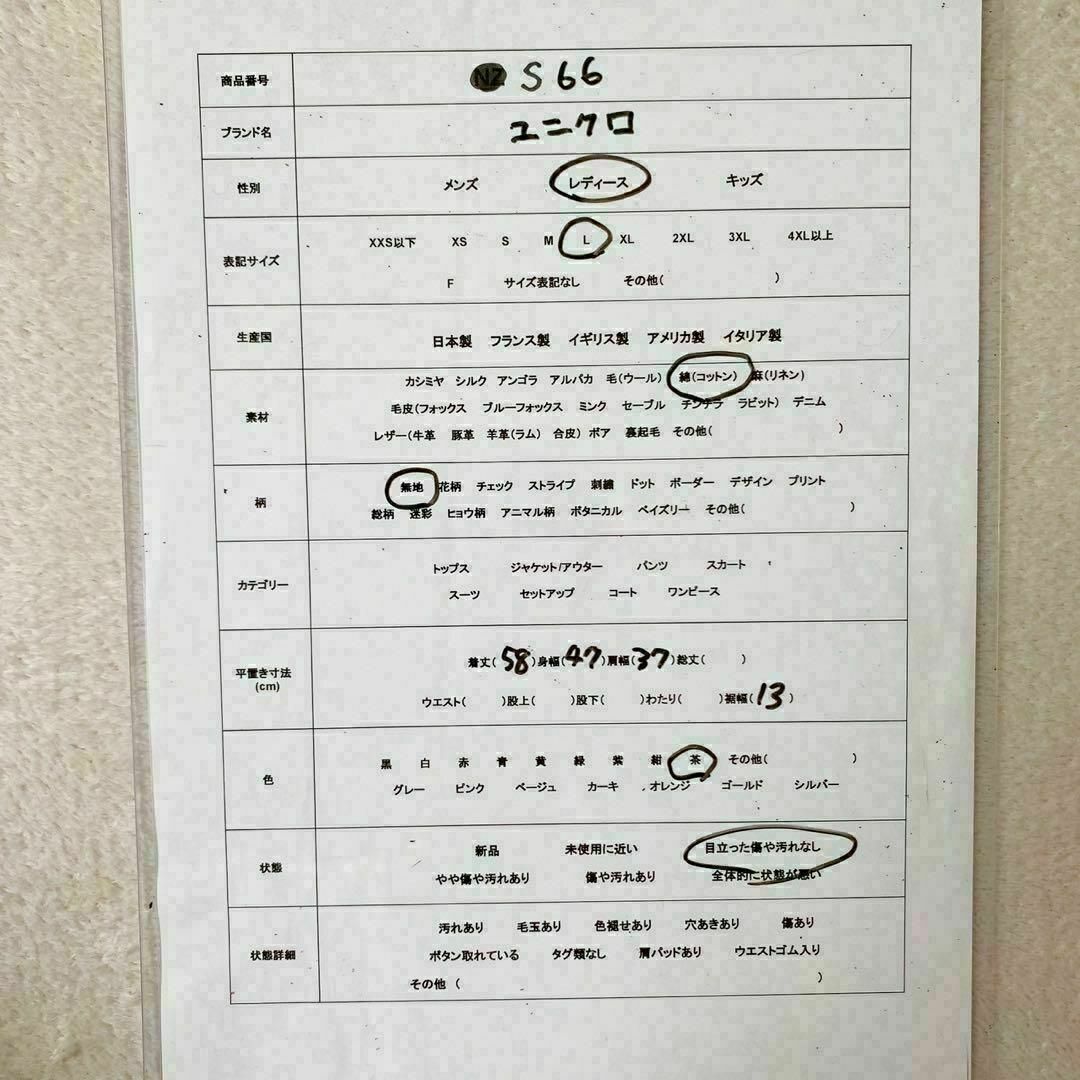 商品番号 NZ S66
ブランド名 ユニクロ
性別 メンズ レディース キッズ
表記サイズ
XXS以下 XS S M L XL 2XL 3XL 4XL以上
F サイズ表記なし その他( )
生産国 日本製 フランス製 イギリス製 アメリカ製 イタリア製
素材
カシミヤ シルク アンゴラ アルパカ 毛(ウール) 綿(コットン) 麻(リネン)
毛皮(フォックス ブルーフォックス ミンク セーブル チンチラ ラビット) デニム
レザー(牛革 豚革 羊革(ラム) 合皮) ボア 裏起毛 その他( )
柄
無地 花柄 チェック ストライプ 刺繍 ドット ボーダー デザイン プリント
総柄 迷彩 ヒョウ柄 アニマル柄 ボタニカル ペイズリー その他( )
カテゴリー
トップス ジャケット/アウター パンツ スカート
スーツ セットアップ コート ワンピース
平置き寸法
(cm)
着丈(58)身幅(47)肩幅(37)総丈( )
ウエスト( )股上( )股下( )わたり( )裾幅(13)
色
黒 白 赤 青 黄 緑 紫 紺 茶 その他( )
グレー ピンク ベージュ カーキ オレンジ ゴールド シルバー
状態
新品 未使用に近い 目立った傷や汚れなし
やや傷や汚れあり 傷や汚れあり 全体的に状態が悪い
状態詳細
汚れあり 毛玉あり 色褪せあり 穴あきあり 傷あり
ボタン取れている タグ類なし 肩パッドあり ウエストゴム入り
その他 ( )